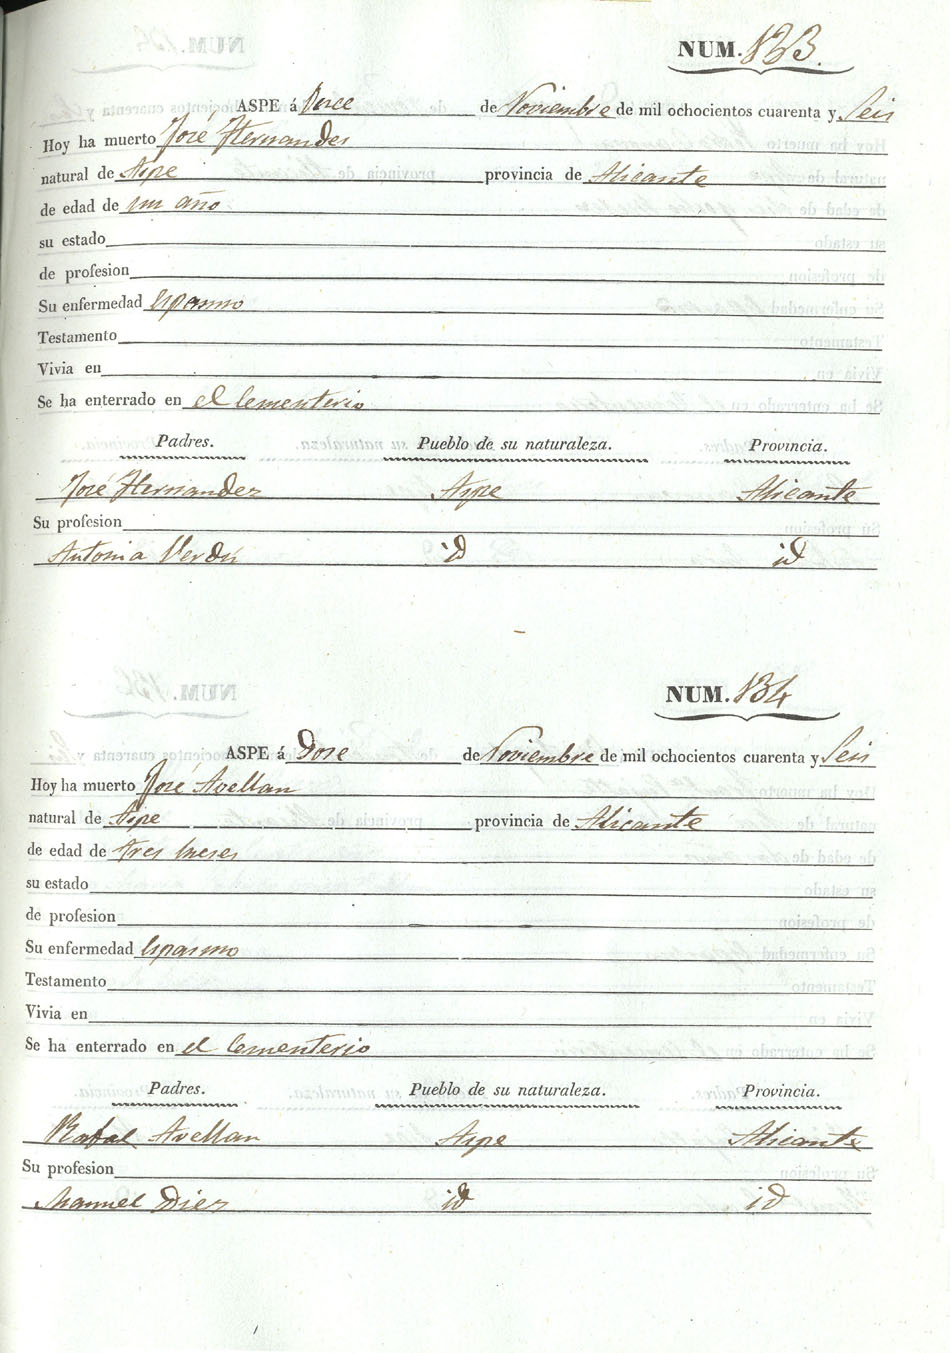 NUM. 133.
ASPE á Doce de Noviembre de mil ochocientos cuarenta y Seis
Hoy ha muerto José Hernandes
natural de Aspe provincia de Alicante
de edad de un año
su estado
de profesion
Su enfermedad Espasmo
Testamento
Vivia en
Se ha enterrado en el Cementerio
Padres. Pueblo de su naturaleza. Provincia.
José Hernandez Aspe Alicante
Su profesion
Antonia Verdú id id
NUM. 134
ASPE á Dose de Noviembre de mil ochocientos cuarenta y Seis
Hoy ha muerto José Avellan
natural de Aspe provincia de Alicante
de edad de tres meses
su estado
de profesion
Su enfermedad Espasmo
Testamento
Vivia en
Se ha enterrado en el Cementerio
Padres. Pueblo de su naturaleza. Provincia.
Rafael Avellan Aspe Alicante
Su profesion
Manuel Dies id id